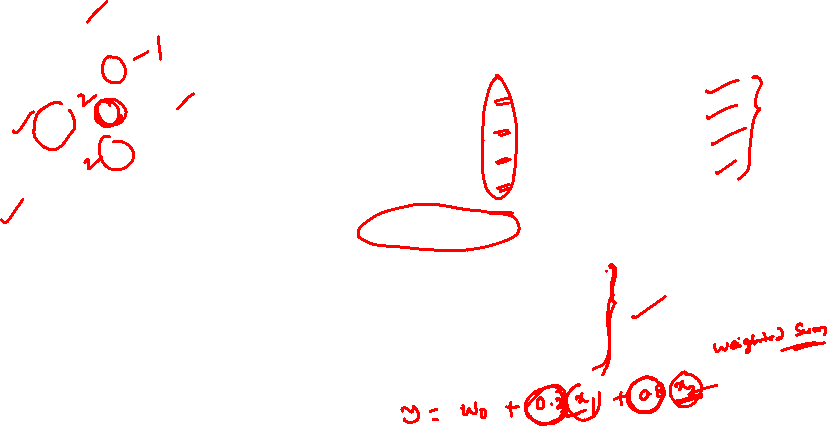 1
2
2
weighted sum
y = w₀ + 0.3 x₁ + 0.8 x₂